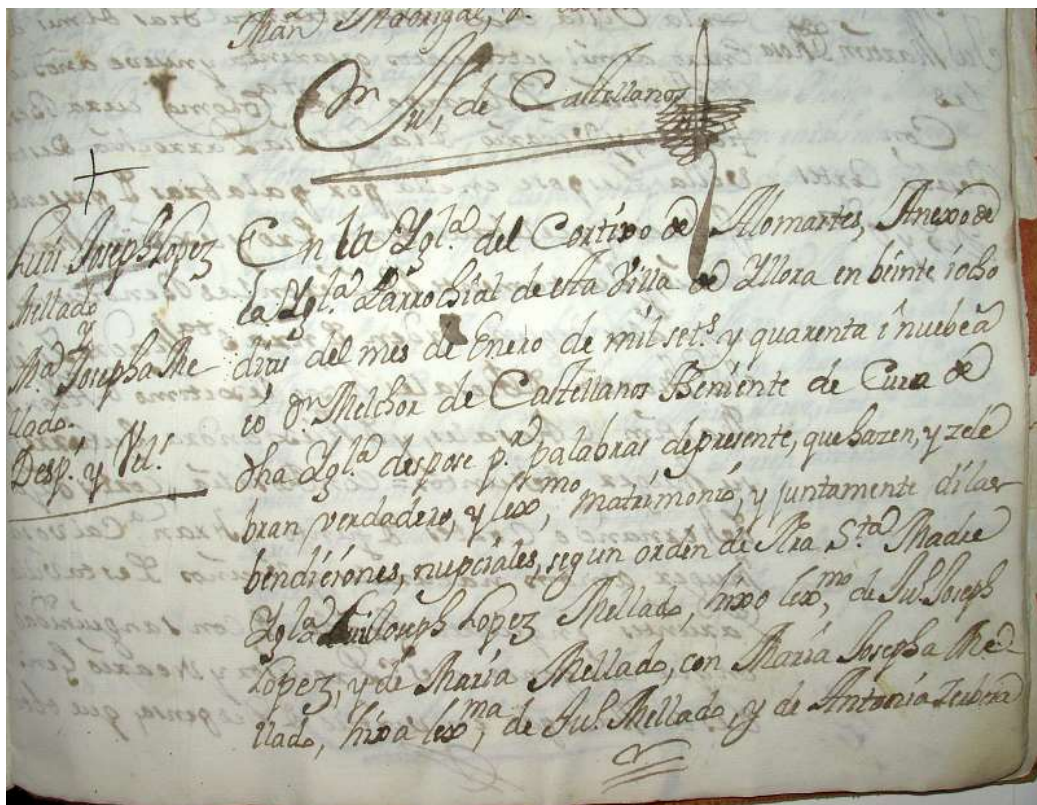 Man Madrigal,
Dn Jul, de Castellanos
Luis Joseph Lopez
Mellado
y
Mª Josepha Me
llado.
Desp.s y Vel.s
En la Yglª del Cortixo de Alomartes, Anexo de
la Yglª Parrochial de esta Villa de Yllora en beinte i ocho
dias del mes de Enero de mil set.s y quarenta i nuebe a
Dn Melchor de Castellanos Beniente de Cura de
dha Yglª despose pr palabras de presente, que hazen, y zele
bran verdadero, y lexmo, matrimonio, y juntamente di las
bendiciones, nupciales, segun orden de Nra Stª Madre
Yglª Luis Joseph Lopez Mellado, hixo lexmo, de Jul. Joseph
Lopez, y de Maria Mellado, con Maria Josepha Me
llado, hixa lexma, de Jul. Mellado, y de Antonia